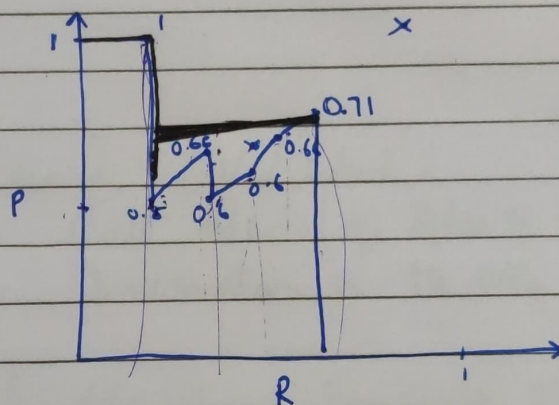 1
1
x
0.71
0.66
0.66
0.6
P
0.5
0.5
R
1